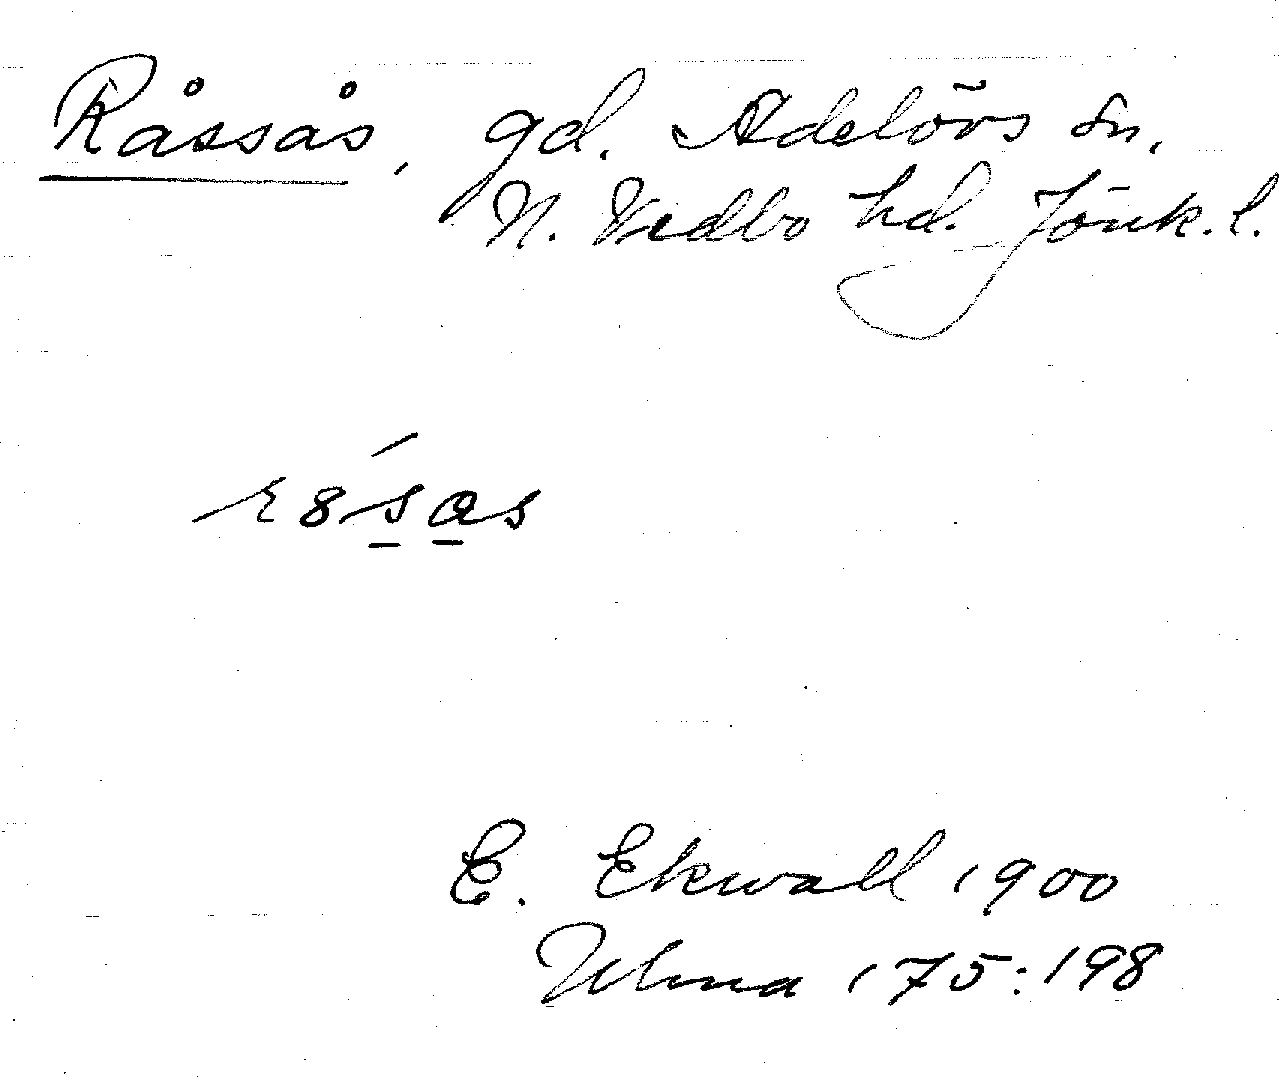 Råssås, gd. Adelövs sn.
N. Vedbo hd. Jönk. l.
E. Ekwall 1900
Ulma 175:198